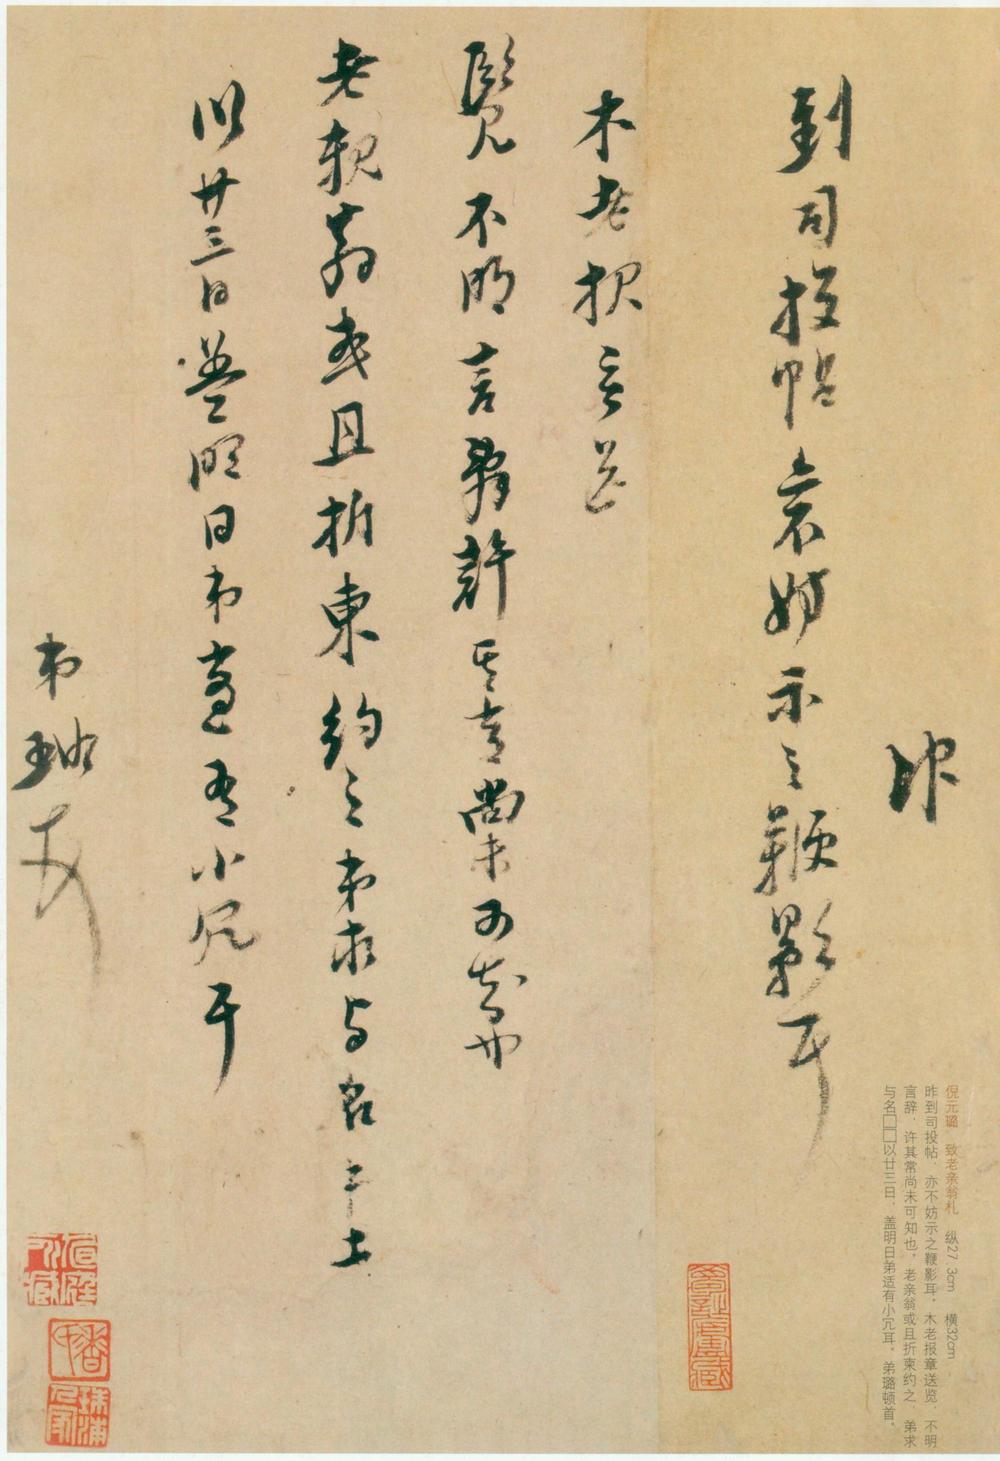 昨
到司投帖亦不妨示之鞭影耳
木老报章送
覽不明言辭許其常尚未可知也
老親翁或且折柬約之弟求与名
以廿三日蓋明日弟適有小冗耳
弟璐頓首
倪元璐 致老亲翁札 纵27.3cm 横32cm
昨到司投帖，亦不妨示之鞭影耳。木老报章送览，不明
言辞，许其常尚未可知也，老亲翁或且折柬约之，弟求
与名□□以廿三日，盖明日弟适有小冗耳。弟璐顿首。